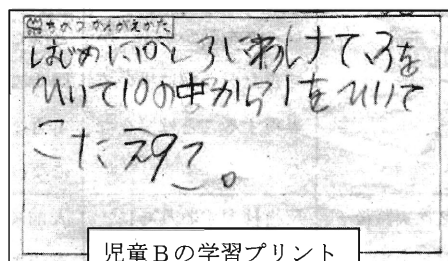 ちがうかんがえかた
はじめに10と3にわけて、3を
ひいて10の中から1をひいて
こたえ9こ。
児童Bの学習プリント